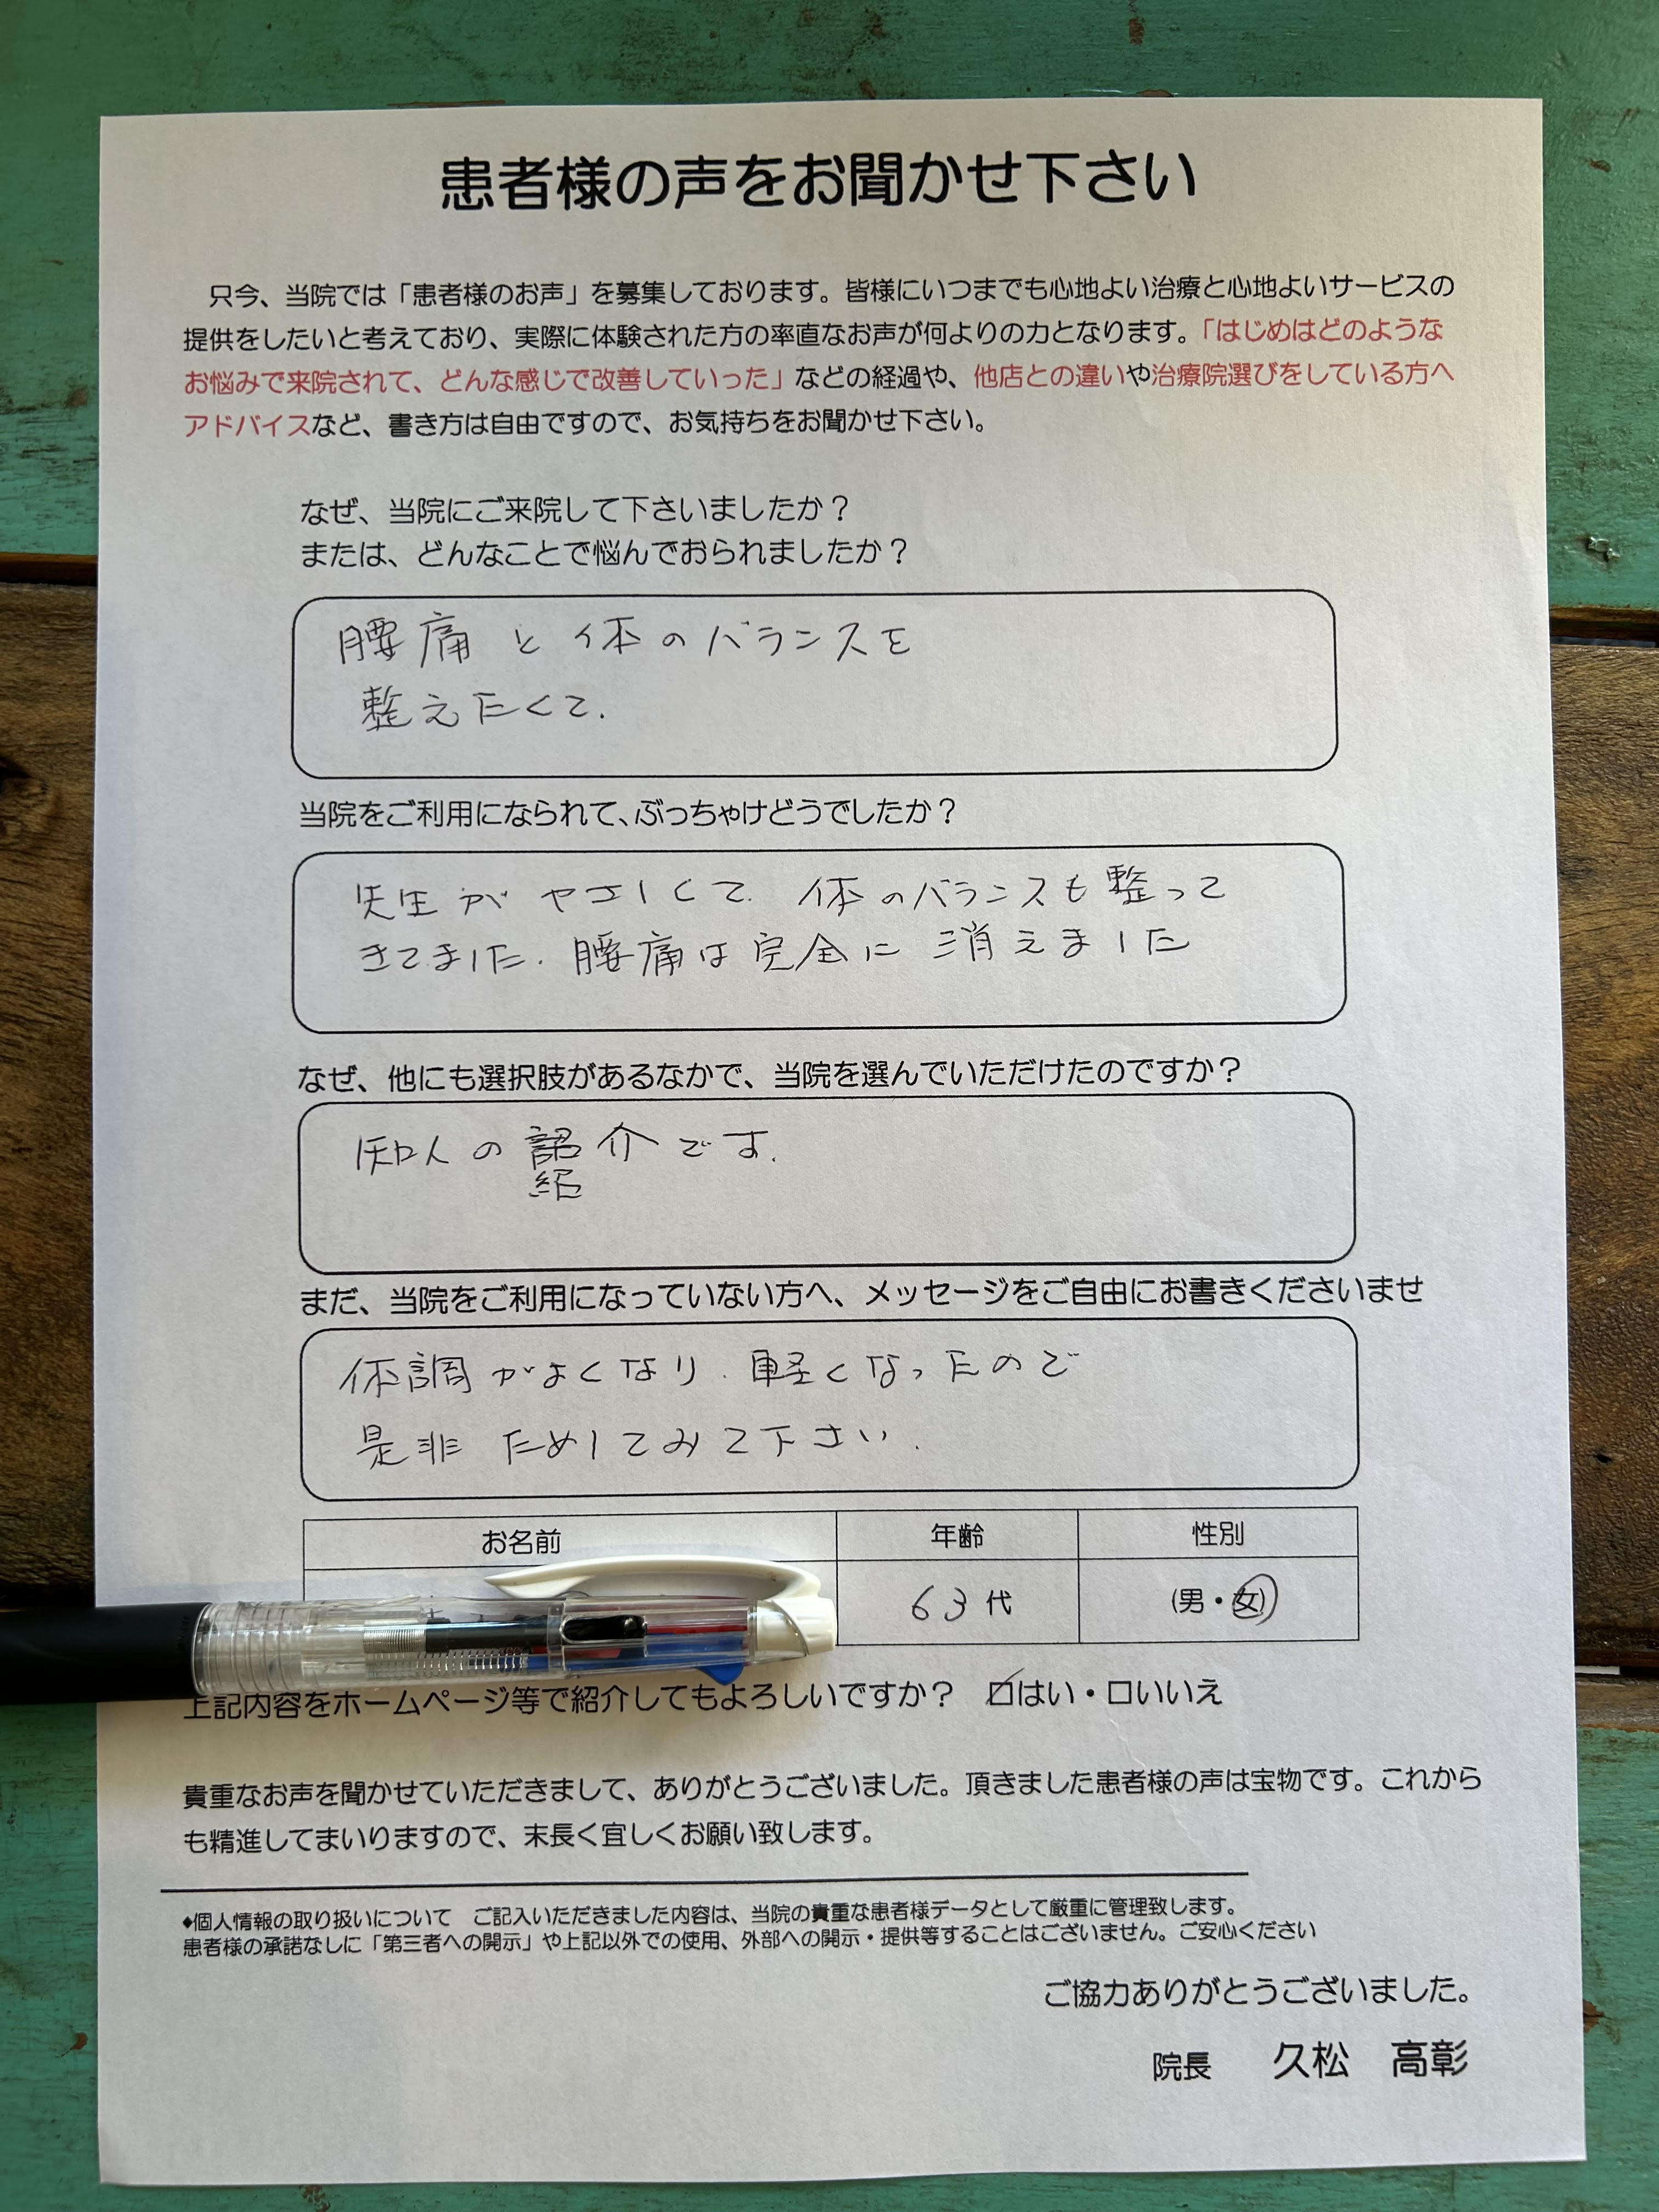 患者様の声をお聞かせ下さい
只今、当院では「患者様のお声」を募集しております。皆様にいつまでも心地よい治療と心地よいサービスの
提供をしたいと考えており、実際に体験された方の率直なお声が何よりの力となります。「はじめはどのような
お悩みで来院されて、どんな感じで改善していった」などの経過や、他店との違いや治療院選びをしている方へ
アドバイスなど、書き方は自由ですので、お気持ちをお聞かせ下さい。
なぜ、当院にご来院して下さいましたか？
または、どんなことで悩んでおられましたか？
腰痛と体のバランスを
整えたくて.
当院をご利用になられて、ぶっちゃけどうでしたか？
先生がやさしくて. 体のバランスも整って
きてました. 腰痛は完全に消えました
なぜ、他にも選択肢があるなかで、当院を選んでいただけたのですか？
知人の 介です.
紹
まだ、当院をご利用になっていない方へ、メッセージをご自由にお書きくださいませ
体調がよくなり. 軽くなったので
是非ためしてみて下さい.
お名前 年齢 性別
63代 (男・女)
上記内容をホームページ等で紹介してもよろしいですか？ ☑はい・□いいえ
貴重なお声を聞かせていただきまして、ありがとうございました。頂きました患者様の声は宝物です。これから
も精進してまいりますので、末長く宜しくお願い致します。
◆個人情報の取り扱いについて ご記入いただきました内容は、当院の貴重な患者様データとして厳重に管理致します。
患者様の承諾なしに「第三者への開示」や上記以外での使用、外部への開示・提供等することはございません。ご安心ください
ご協力ありがとうございました。
院長 久松 高彰